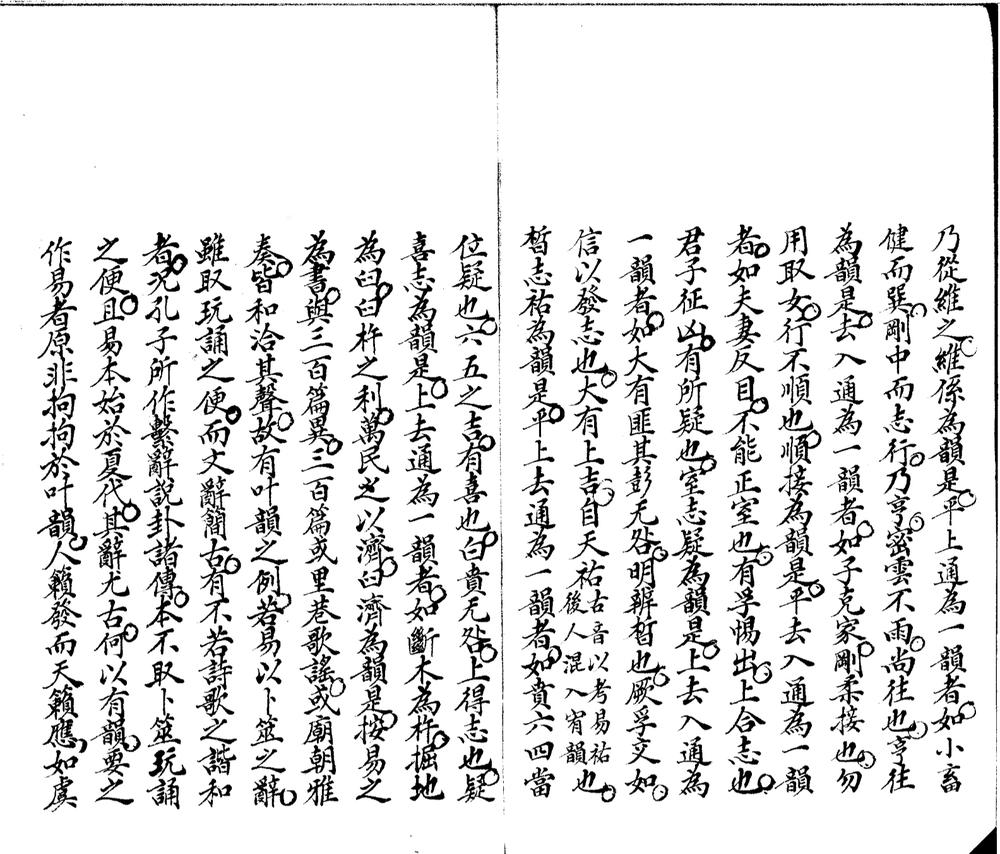 乃從維之維係為韻是平上通為一韻者如小畜
健而巽剛中而志行乃亨密雲不雨尚往也亨往
為韻是去入通為一韻者如子克家剛柔接也勿
用取女行不順也順接為韻是平去入通為一韻
者如夫妻反目不能正室也有孚惕出上合志也
君子征凶有所疑也室志疑為韻是上去入通為
一韻者如大有匪其彭无咎明辨晳也厥孚交如
信以發志也大有上吉自天祐古音以考易祐後人混入宥韻也
晳志祐為韻是平上去通為一韻者如賁六四當
位疑也六五之吉有喜也白賁无咎上得志也疑
喜志為韻是上去通為一韻者如斷木為杵掘地
為臼臼杵之利萬民以濟臼濟為韻是按易之
為書與三百篇異三百篇或里巷歌謠或廟朝雅
奏皆和洽其聲故有叶韻之例若易以卜筮之辭
雖取玩誦之便而文辭簡古有不若詩歌之諧和
者況孔子所作繫辭說卦諸傳本不取卜筮玩誦
之便且易本始於夏代其辭尤古何以有韻要之
作易者原非拘拘於叶韻人籟發而天籟應如虞